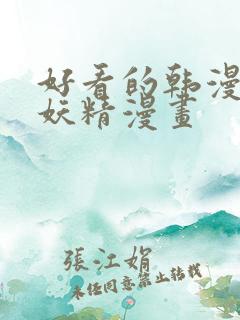 好看的韩漫
妖精漫畫
張江娟
未经同意禁止转载